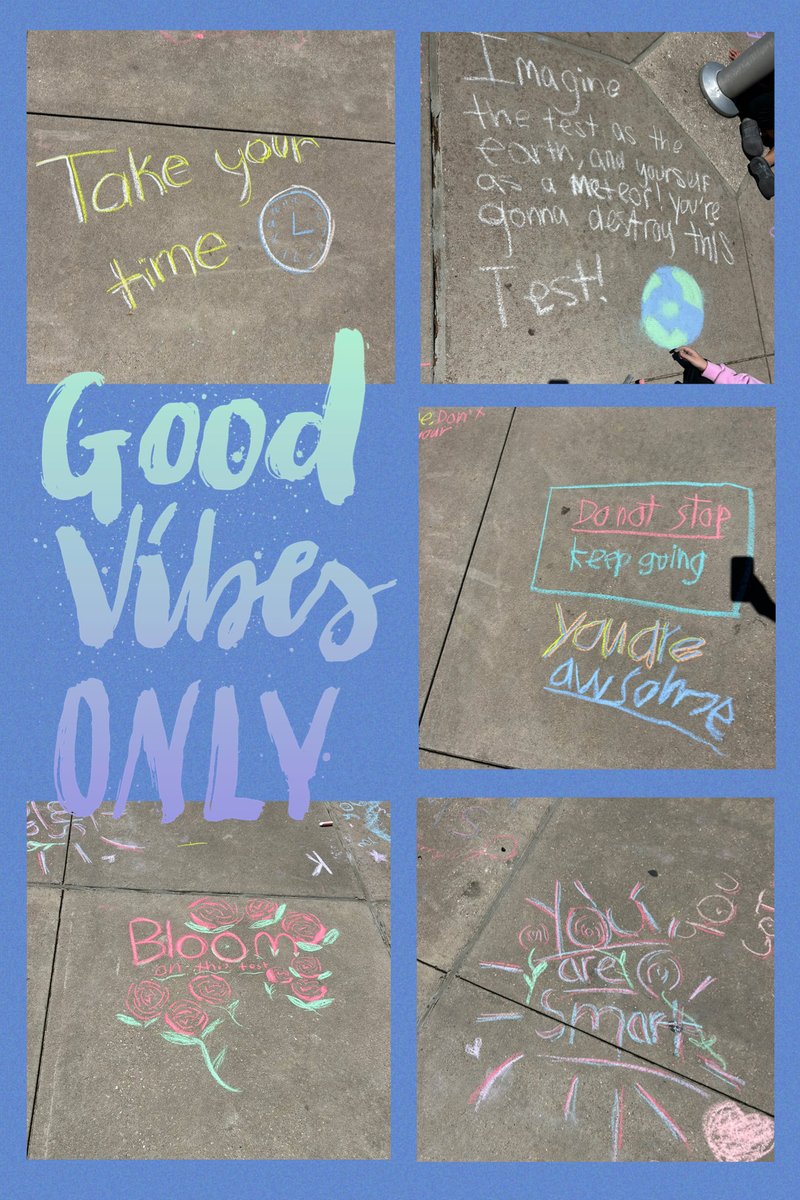 Take your
time
Imagine
the test as the
earth, and yourself
as a meteor! you're
gonna destroy this
Test!
Good
Vibes
ONLY
Don't
your
Do not stop
keep going
you are
awsome
Bloom
on this test
You
are
smart
you
GOT